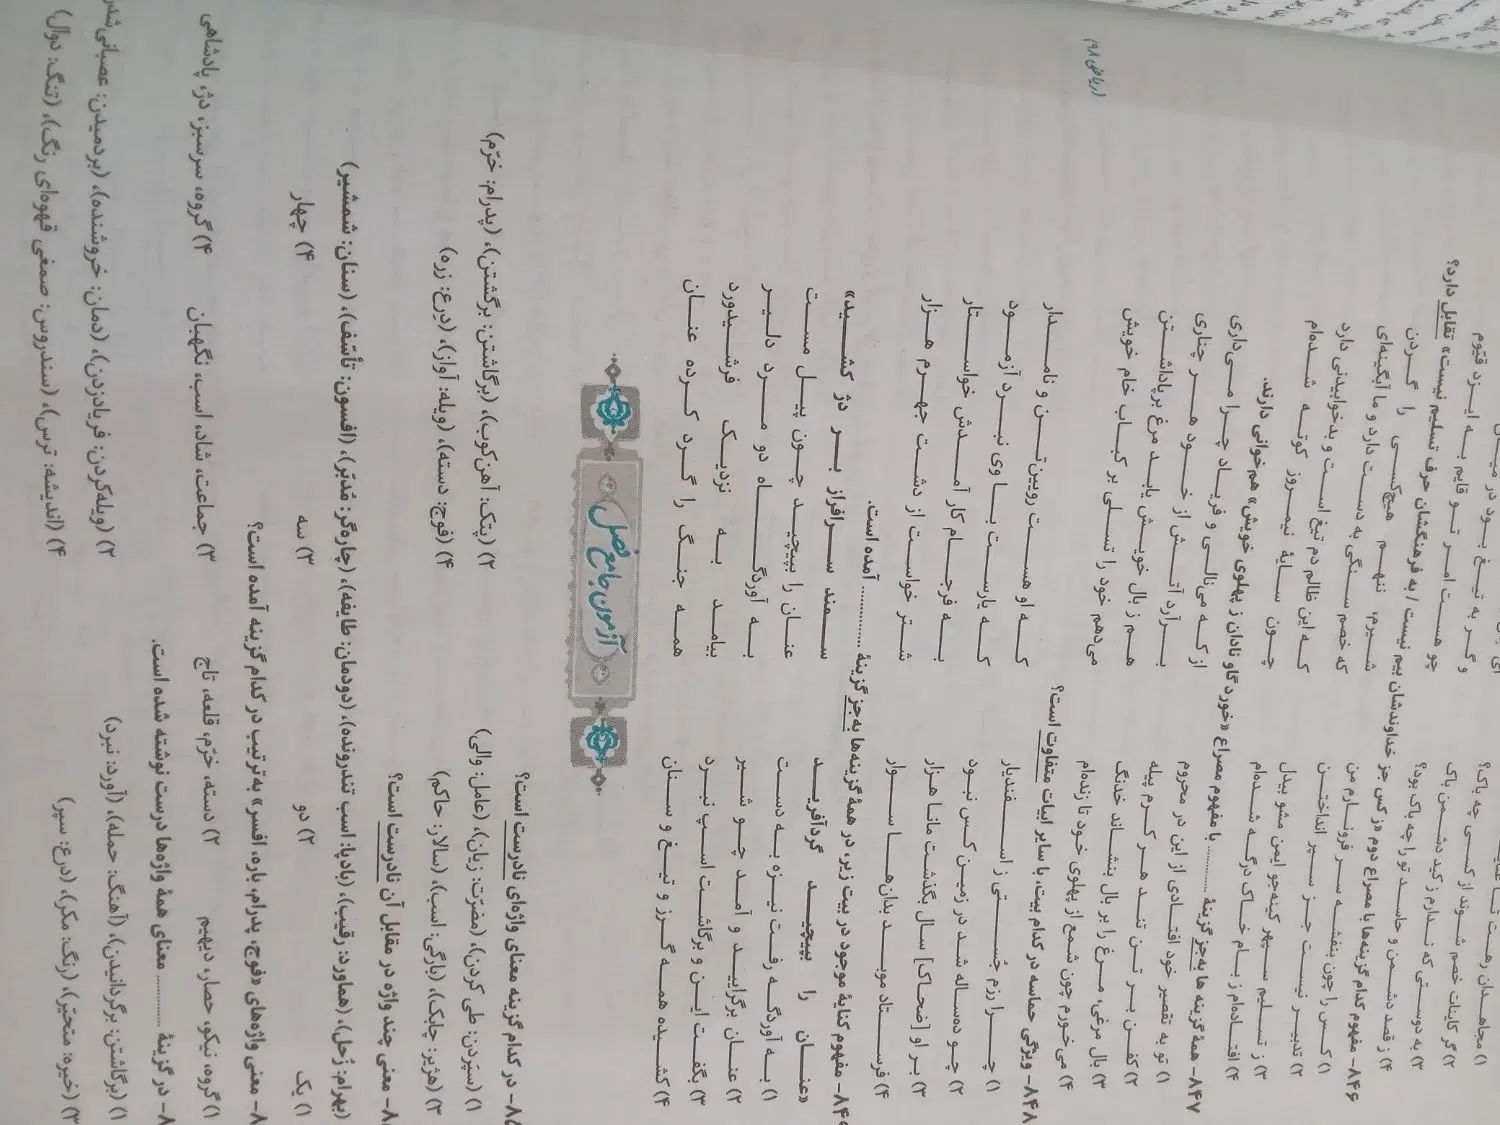 و گر به تیغ بود در میان
۱) مجاهدان رهت تا
چو هست امر تو قایم به ایزد قیّوم
۲) گر کاینات خصم شوند از کسی چه باک؟
را گردن
۳) به دوستی که ندارم ز کید دشمن باک
شیرم، ننهم هیچ‌کسی را گردن
۴) ز قصد دشمن و حاسد تو را چه باک بود؟
۸۴۶- مفهوم کدام گزینه‌ها با مصراع دوم «ز کس جز خداوندشان بیم نیست / به فرهنگشان حرف تسلیم نیست» تقابل دارد؟
۱) کس را چون بنفشه سر فرونارم من
که خصم سنگی به دست دارد و ما آبگینه‌ای
۲) تدبیر نیست جز سپر انداختن
که این ظالم دم تیغ است و بدخوابیدنی دارد
۳) ز تسلیم سپهر کینه‌جو ایمن مشو بیدل
چون سایهٔ نیم‌روز کوته شده‌ام
۴) افتاده‌ام ز بام خاک درگه شده‌ام
۸۴۷- همهٔ گزینه ها به‌جز گزینهٔ .......... با مفهوم مصراع «خورد گاو نادان ز پهلوی خویش» هم‌خوانی دارند.
۱) تو به تقصیر خود افتادی از این در محروم
از که می‌نالی و فریاد چرا می‌داری
۲) کفن بر تن تند هر کرم پیله
برآرد آتش از خود هر چناری
۳) بال مرغی، مرغ را بر بال بنشاند خدنگ
هم ز بال خویش یابد مرغ بر پاداشتن
۴) می خورم چون شمع از پهلوی خود تا زنده‌ام
می‌دهم خود را تسلی بر کباب خام خویش
(ریاضی ۹۸)
۸۴۸- ویژگی حماسه در کدام بیت، با سایر ابیات متفاوت است؟
۱) چرا رزم جستی ز اسفندیار
که او هست رویین‌تن و نامدار
۲) چو ده‌ساله شد در زمین کس نبود
که یارست با وی نبرد آزمود
۳) بر او [ضحاک] سال بگذشت مانا هزار
به فرجام کار آمدش خواستار
۴) فرستاد موبد بدان‌ها سوار
شتر خواست از دشت جهرم هزار
۸۴۹- مفهوم کنایهٔ موجود در بیت زیر، در همهٔ گزینه‌ها به‌جز گزینهٔ .......... آمده است.
«عنان را بپیچید گردآفرید
سمند سرافراز بر دژ کشید»
۱) به آوردگه رفت نیزه به دست
عنان را بپیچید چون پیل مست
۲) عنان برگرایید و آمد چو شیر
به آوردگاه دو مرد دلیر
۳) بگفت این و برگاشت اسپ نبرد
بیامد به نزدیک فرشیدورد
۴) کشیده همه گرز و تیغ و سنان
همه جنگ را گرد کرده عنان
آزمون جامع فصل
- در کدام گزینه معنای واژه‌ای نادرست است؟
۱) (سپَردن: طی کردن)، (مضرّت: زیان)، (عامل: والی)
۲) (پتک: آهن‌کوب)، (برگاشتن: برگشتن)، (پدرام: خرّم)
۳) (هژیر: چابک)، (بارگی: اسب)، (سالار: حاکم)
۴) (فوج: دسته)، (ویله: آواز)، (دِرع: زره)
- معنی چند واژه در مقابل آن نادرست است؟
(بهرام: زُحل)، (هماورد: رقیب)، (بادپا: اسب تندرونده)، (دودمان: طایفه)، (چاره‌گر: مُدبّر)، (افسون: تأسّف)، (سنان: شمشیر)
۱) یک
۲) دو
۳) سه
۴) چهار
- معنی واژه‌های «فوج، پدرام، باره، افسر» به‌ترتیب در کدام گزینه آمده است؟
۱) گروه، نیکو، حصار، دیهیم
۲) دسته، خرّم، قلعه، تاج
۳) جماعت، شاد، اسب، نگهبان
۴) گروه، سرسبز، دژ، پادشاهی
- در گزینهٔ .......... معنای همهٔ واژه‌ها درست نوشته شده است.
۱) (برگاشتن: برگردانیدن)، (آهنگ: حمله)، (آورد: نبرد)
۲) (ویله‌کردن: فریادزدن)، (دمان: خروشنده)، (بردمیدن: عصبانی‌شدن
۳) (خیره: متحیّر)، (رنگ: مکر)، (درع: سپر)
۴) (اندیشه: ترس)، (سندروس: صمغی قهوه‌ای رنگ)، (تنگ: دوال)